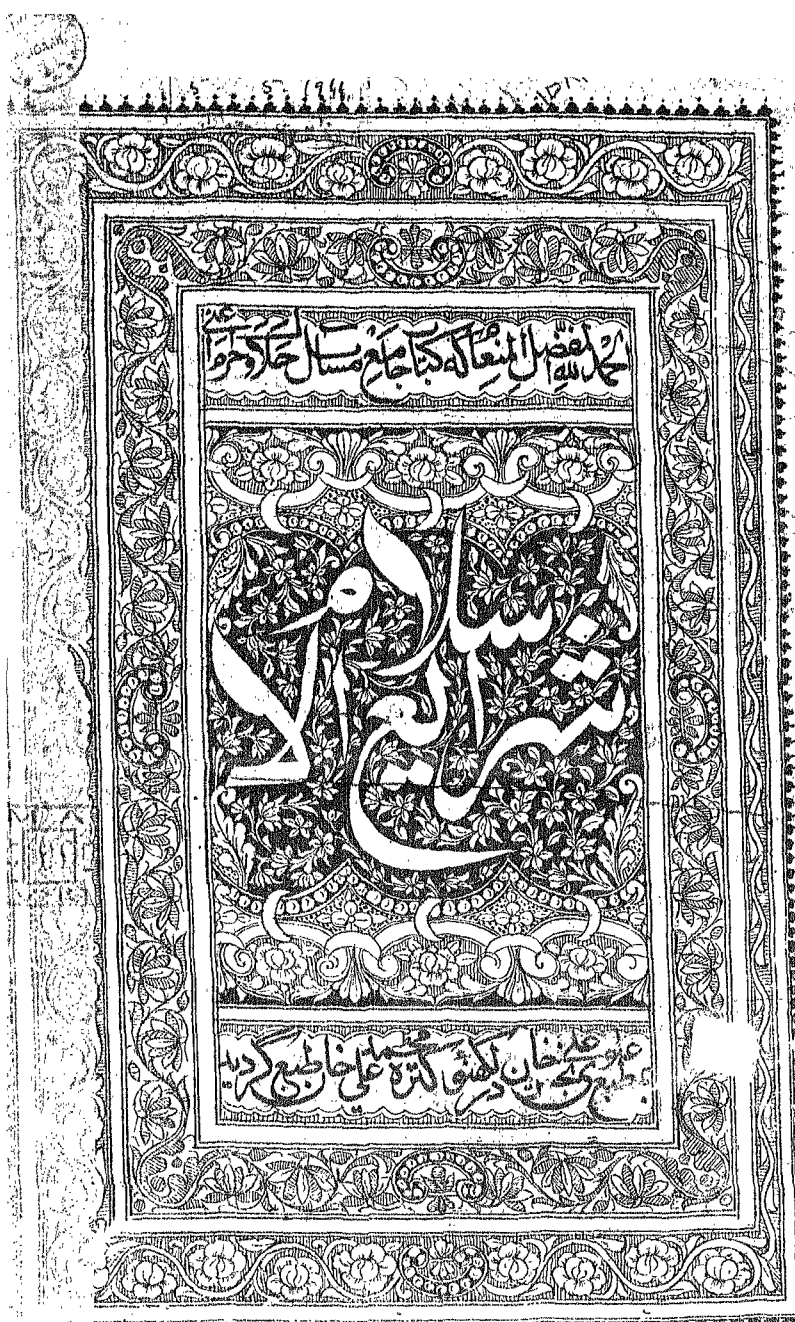 الحمد لله المفضل المنعام که کتاب جامع مسائل حلال و حرام اعنی
شرایع الاسلام
بمطبع علی بخش خان در لکهنؤ کتره محمد علی خان طبع گردید